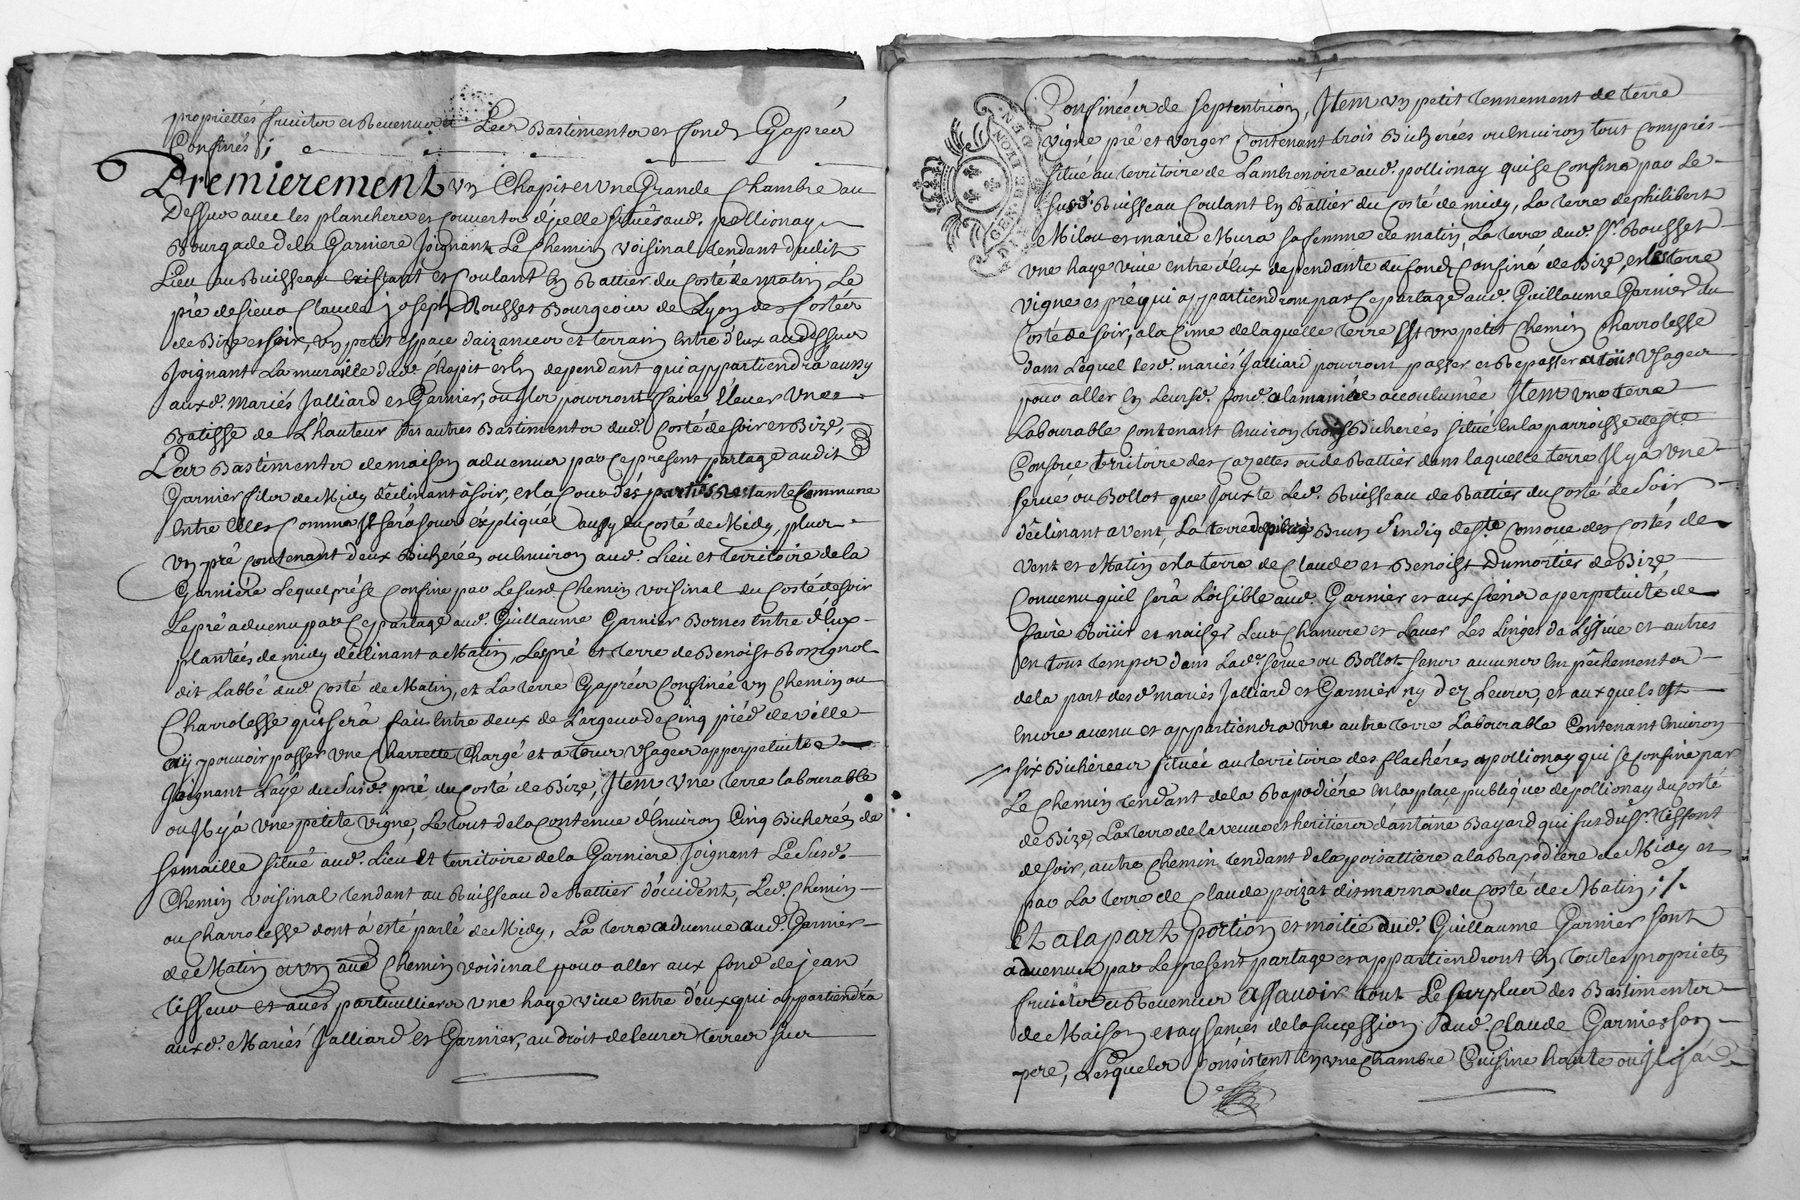 propriettés fruitor et Revenuor et Leor Bastimentor et fond Cyapréz
Confinés ;
Premierement un Chapit et une Grande Chambre au
Dessuor avec les plancheor et couvertor d'jcelle situés aud. pollionay
Bourgade de la Garniere Joignant Le Chemin voisinal tendant dudit
Lieu au Ruisseau Existant et Coulant En Rattier du Costé de matin Le
pré de sieuor Claude joseph Rousset Bourgeoior de Lyon deor Costéor
de Bize et soir, un petit espace d'aizanceor et terrain Entre d'Eux audessuor
Joignant La muraille dud. Chapit et En dependant qui appartiendra aussy
auxd. mariés Jalliard et Garnier, ou Jlor pourront faire Elever Une
Batisse de L'hauteur des autres Bastimentor dud. Costé de soir et Bize,
Leor Bastimentor de maison advenuor par Ce present partage audit
Garnier filor de Midy déclinant à soir, et la Cour des parties Restante Commune
Entre Elleor Comme Jl sera pour éxpliqué aussy du costé de Midy, pluor
Un pré Contenant deux Bicherées ou Environ aud. Lieu et territoire de la
Garniere Lequel pré se Confine par Le susd. Chemin voisinal du Costé de soir
Le pré advenu par Ce partage aud. Guillaume Garnier Bornes Entre d'Eux
plantées de midy déclinant a Matin, Le pré et terre de Benoist Rossignol
dit Labbé dud. Costé de Matin, et La terre Cyapréor Confinée un Chemin ou
Charrolesse qui sera fait Entre deux de Largeuor de Cinq piéd de ville
aÿ pouvoir passer une Charrette Chargé et a tour Usageor apperpetuité
Joignant L'aÿe du susd. pré du Costé de Bize, Jtem Une terre labourable
ou Jl y à Une petite vigne, Le tout de la Contenue d'Environ Cinq Bicherées de
semaille situé aud. Lieu Et territoire de la Garniere Joignant Le susd.
Chemin voisinal tendant au Ruisseau de Rattier d'occident, Led. Chemin
ou Charrolesse dont à esté parlé de Midy, La terre advenue aud. Garnier
de Matin et un aud Chemin voisinal pour aller aux fond de jean
tisseur et aues particullieror une haye vive Entre d'eux qui appartiendra
auxd. Mariés Jalliard Et Garnier, au droit de leuror terreor sur
Confinéeor de septentrion, Jtem Un petit tennement de terre
vigne pré et verger Contenant trois Bicherées ou Environ tout Compris
situé au territoire de Lambrenoire aud. pollionay qui se Confine par Le
susd. Ruisseau Coulant En Rattier du Costé de midy, La terre de philibert
Milou et marie Mura sa femme de matin, La terre dud. Sr. Rousset
Une haye vive entre d'Eux dependante du fond Confiné de Bize, et les terre
vigne et pré qui appartiendront par Ce partage aud. Guillaume Garnier du
Costé de soir, a la Cime de laquelle terre Est un petit Chemin Charrolesse
dans Lequel lesd. mariés Jalliard pourront passer et Repasser a tous Usageor
pour aller En Leursd. fond a la maniére accoutumée Jtem Une terre
Labourable contenant Environ trois Bicherées situé En la parroisse de Ste.
Consorce territoire des Cazettes ou de Rattier dans laquelle terre Jl y a Une
serve ou Bollot que Jouxte Led. Ruisseau de Rattier du Costé de Soir
déclinant a vent, La terre de pierre Brun Sindiq de Ste. Consorce des Costés de
vent et Matin et la terre de Claude et Benoist Dumortier de Bize
Convenu quil sera Loisible aud. Garnier et aux sienor a perpetuité de
faire Roüir et naiser Leuor Chanvre et Laver Les Linges de Lissive et autres
En tous tempor dans Lad. serve ou Bollot senor aucunor Empêchementor
de la part desd. mariés Jalliard et Garnier ny de Leuror, et aux quels est
Encore avenu et appartiendra Une autre terre Labourable Contenant Environ
six Bichéreeor située au territoire des flachéres a pollionay qui se Confine par
Le Chemin tendant de la Rapodiére En la place publique de pollionay du Costé
de Bize, La terre de la veuve et heritieror d'antoine Bayard qui fut du Sr. tissont
de soir, autre Chemin tendant de la poisattiere a la Rapodiere de Midy et
par La terre de Claude poizat dit marna du Costé de Matin ;/.
Et a la part portion et moitié dud. Guillaume Garnier sont
advenuor par Le present partage et appartiendront En toutes proprietés
fruitor et Revenuor assavoir tout Le surpluor des Bastimentor
de Maison et aysances de la succession dud. Claude Garnier son
pere, Lesqueleor Consistent En Une Chambre Cuisine haute ou Jl y à
GEN. DE LYON